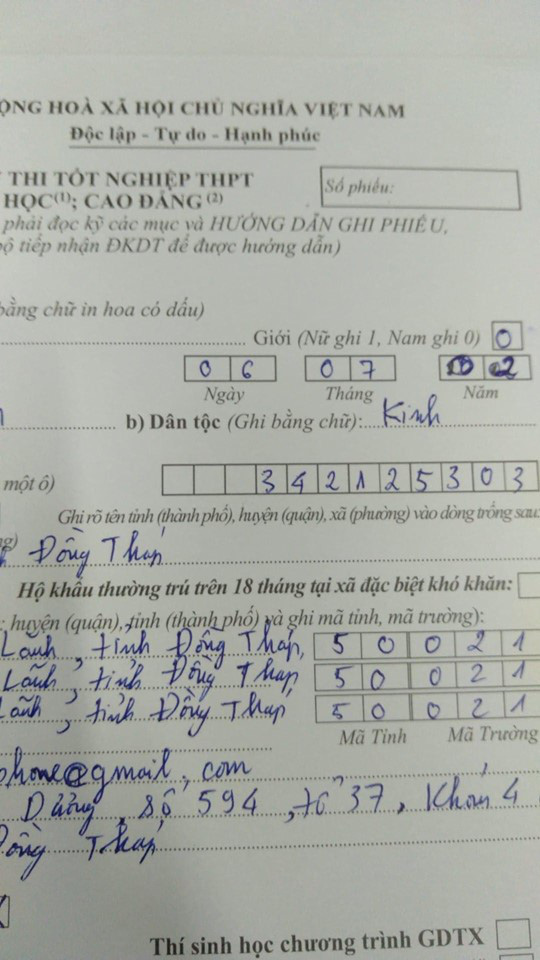 ỘNG HOÀ XÃ HỘI CHỦ NGHĨA VIỆT NAM
Độc lập - Tự do - Hạnh phúc
THI TỐT NGHIỆP THPT
HỌC(1); CAO ĐẲNG (2)
Số phiếu:
phải đọc kỹ các mục và HƯỚNG DẪN GHI PHIẾU,
bộ tiếp nhận ĐKDT để được hướng dẫn)
bằng chữ in hoa có dấu)
Giới (Nữ ghi 1, Nam ghi 0) 0
0 6 0 7 0 2
Ngày Tháng Năm
b) Dân tộc (Ghi bằng chữ): Kinh
một ô) 3 4 2 1 2 5 3 0 3
Ghi rõ tên tỉnh (thành phố), huyện (quận), xã (phường) vào dòng trống sau:
Đồng Tháp
Hộ khẩu thường trú trên 18 tháng tại xã đặc biệt khó khăn:
huyện (quận), tỉnh (thành phố) và ghi mã tỉnh, mã trường):
Lãnh, tỉnh Đồng Tháp, 5 0 0 2 1
Lãnh, tỉnh Đồng Tháp 5 0 0 2 1
Lãnh, tỉnh Đồng Tháp 5 0 0 2 1
Mã Tỉnh Mã Trường
phone@gmail.com
Đường, số 594, tổ 37, Khóm 4
Đồng Tháp
Thí sinh học chương trình GDTX